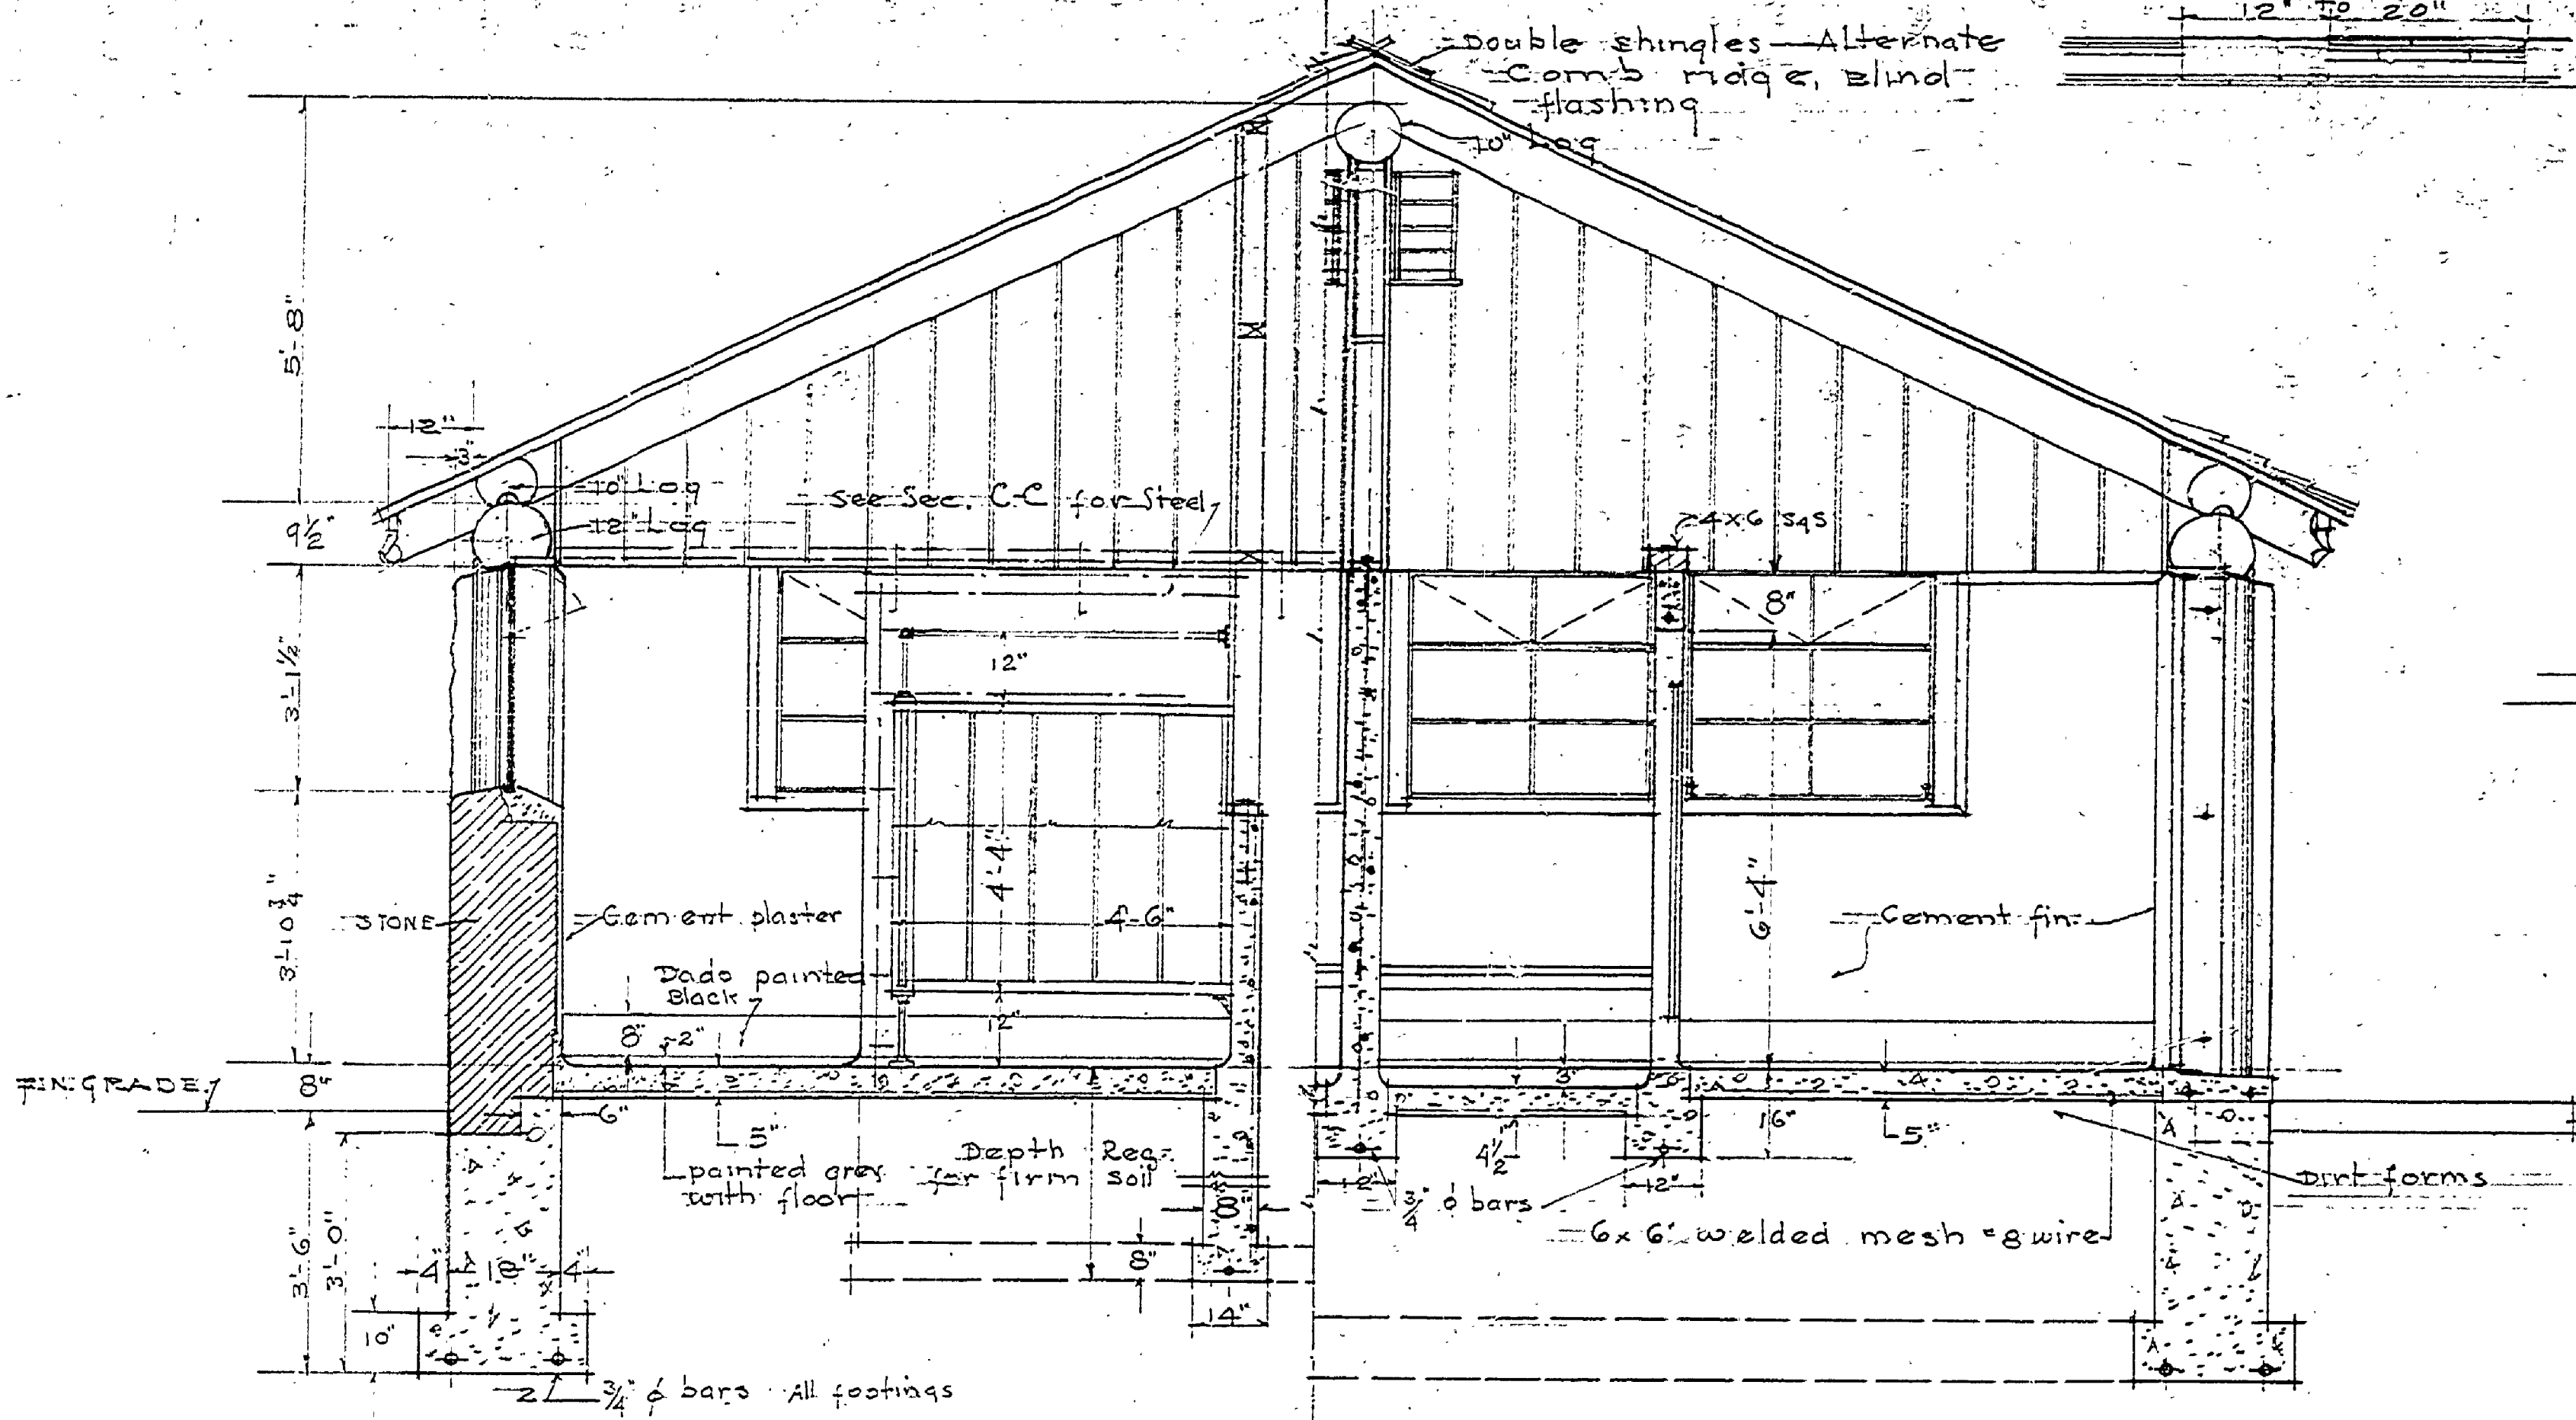 12" TO 20"
Double shingles—Alternate
Comb ridge, Blind
flashing
10" Log
5'-8"
12"
3"
10" Log
12" Log
See Sec. C-C for Steel
4x6 S4S
9½"
8"
3'-1½"
12"
4'-4"
4'-6"
6'-4"
3'-10¾"
STONE
Cement plaster
Cement fin.
Dado painted
Black
8"
2"
12"
FIN. GRADE
8"
6"
3"
5"
painted grey
with floor
Depth Reg.
for firm Soil
4½"
16"
5"
Dirt forms
12"
12"
¾" ϕ bars
6x6" welded mesh #8 wire
8"
8"
14"
3'-6"
3'-0"
4"
18"
4"
10"
2 ¾" ϕ bars All footings